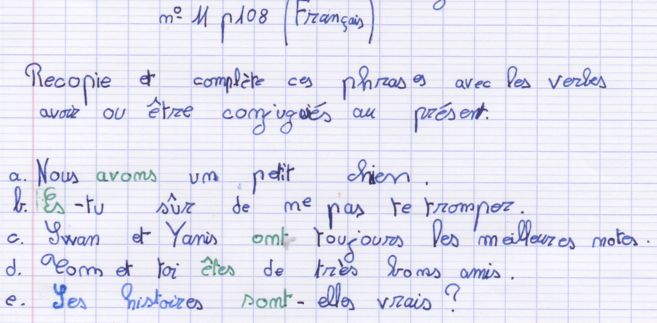 n° 11 p108 (Français)
Recopie et complète ces phrases avec les verbes
avoir ou être conjugués au présent.
a. Nous avons un petit chien.
b. Es-tu sûr de ne pas te tromper.
c. Swan et Yanis ont toujours les meilleures notes.
d. et toi êtes de très bons amis.
e. Ses histoires sont-elles vrais ?